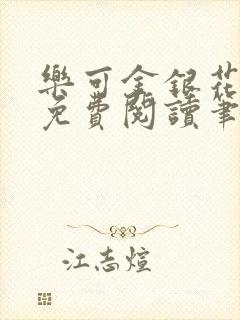 樂可金銀花
免費閱讀筆
江志煊